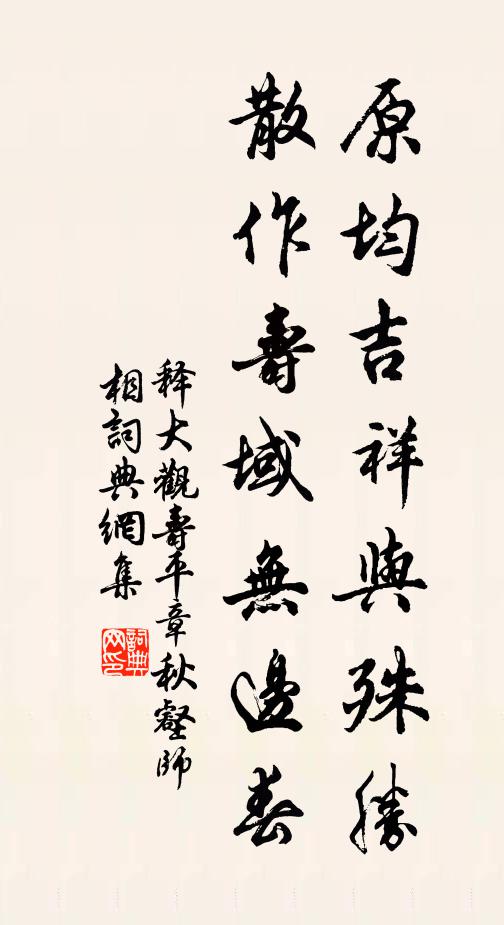 原均吉祥與殊勝
散作壽域無邊春
釋大觀壽平章秋壑師
相詞典網集
詞典
网印